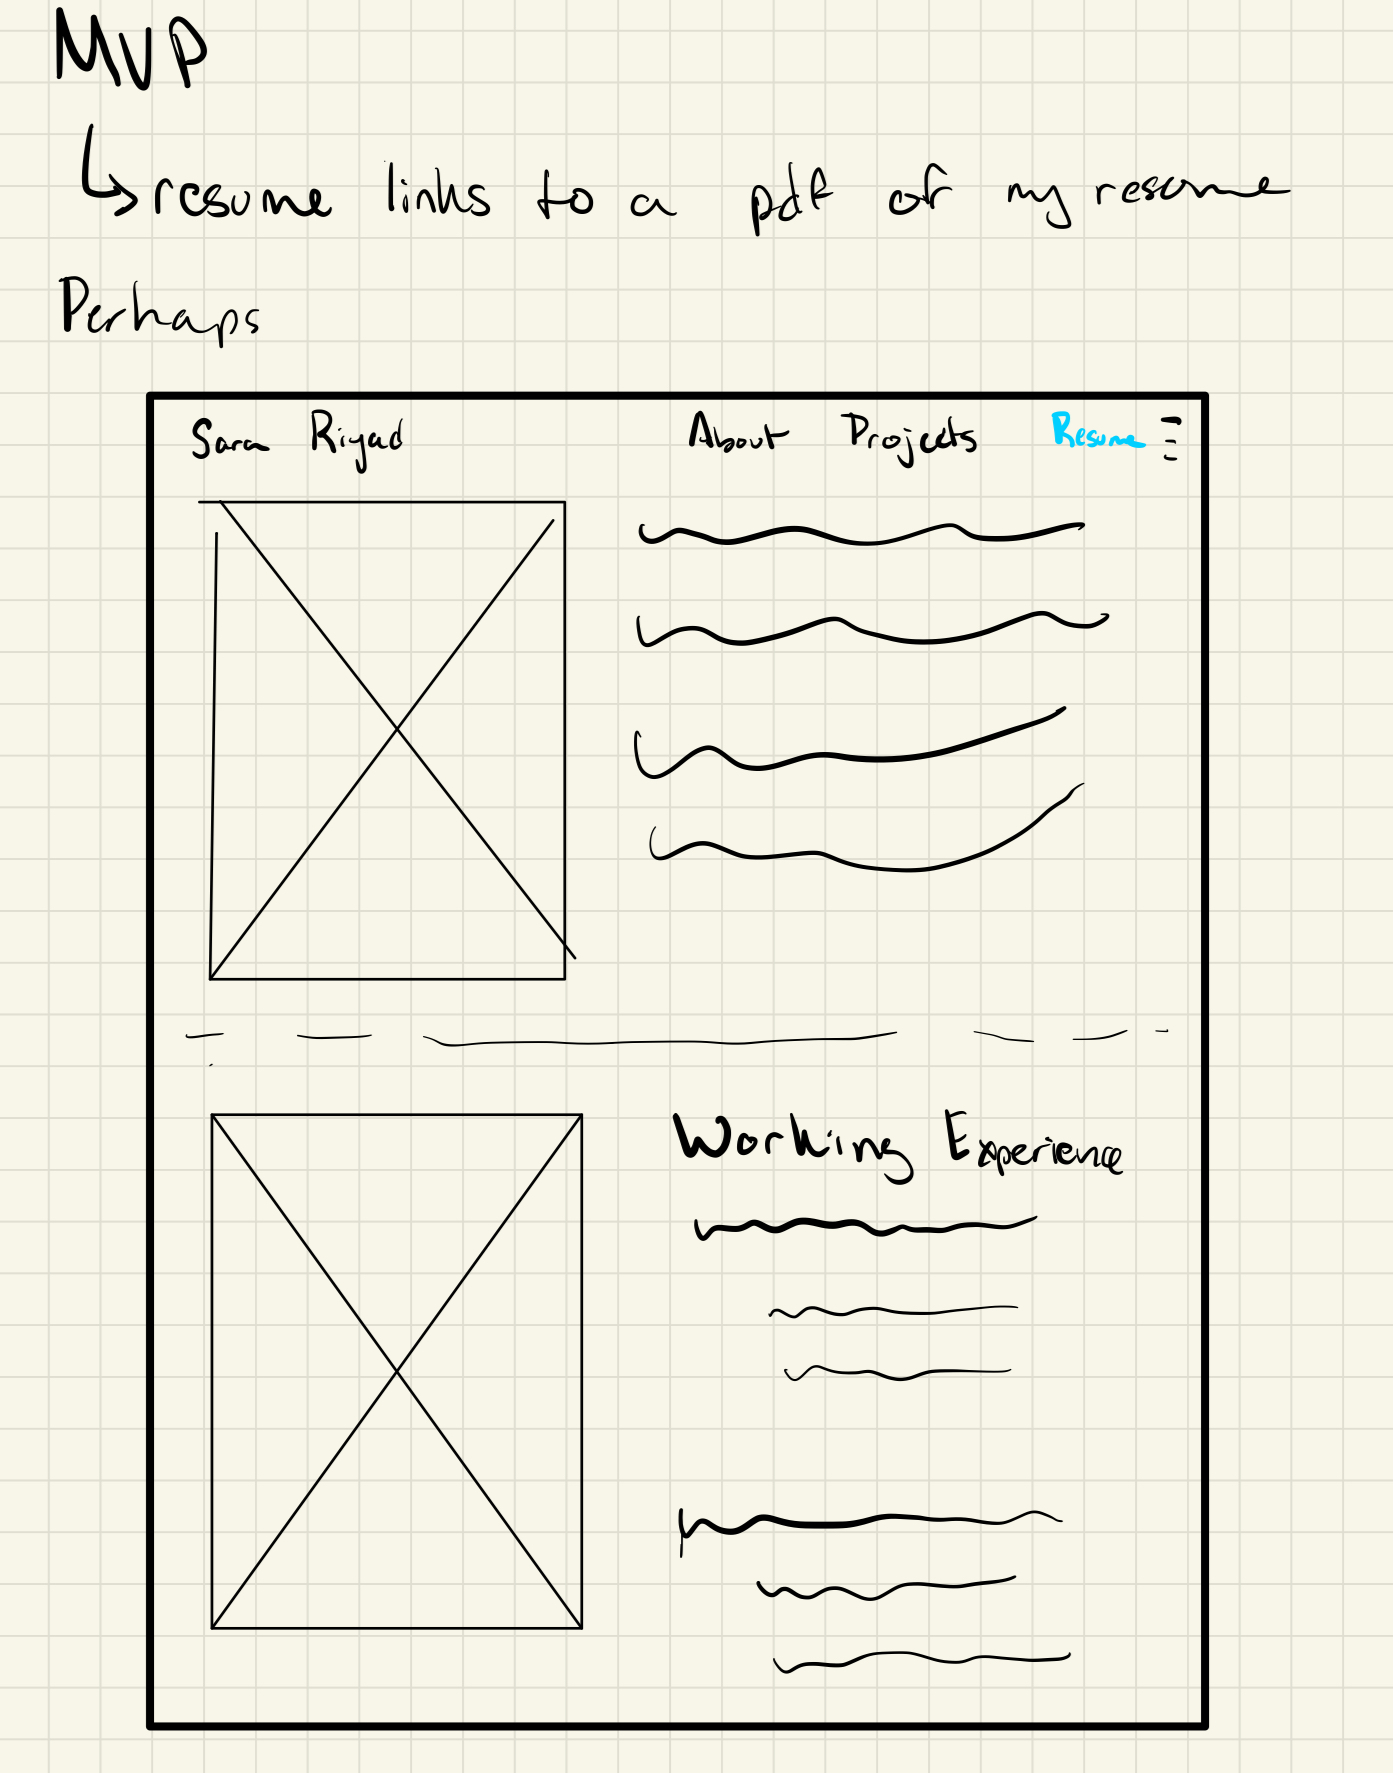 MVP
resume links to a pdf of my resume
Perhaps
Sara Riyad About Projects Resume
Working Experience